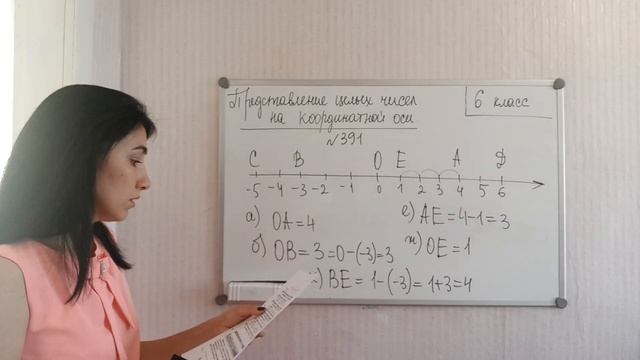 Представление целых чисел
на координатной оси
6 класс
№391
C B O E A D
-5 -4 -3 -2 -1 0 1 2 3 4 5 6
а) OA=4
б) OB=3=0-(-3)=3
BE=1-(-3)=1+3=4
е) AE=4-1=3
ж) OE=1